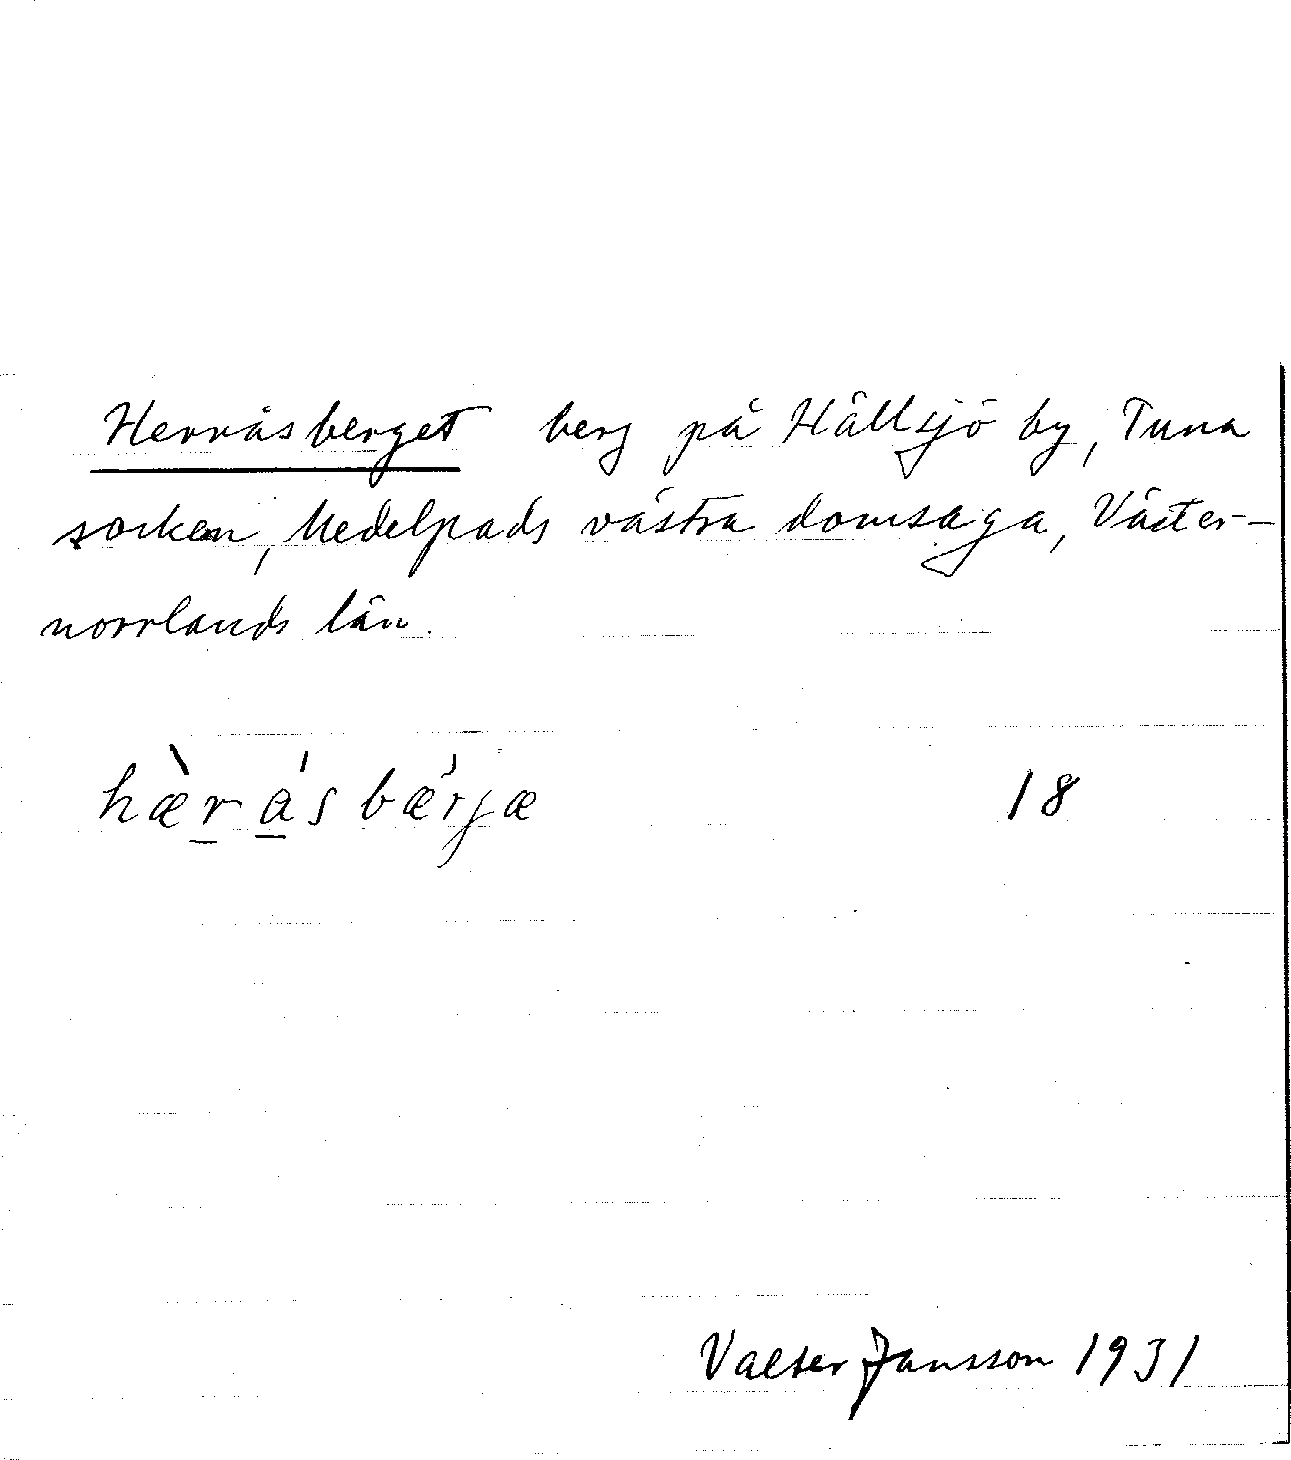 Herråsberget berg på Hällsjö by, Tuna
socken, Medelpads västra domsaga, Väster-
norrlands län.
hæ̀r̲á̲sbæ̓rjæ 18
Valter Jansson 1931